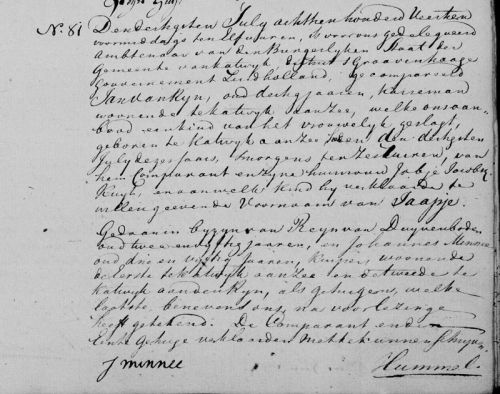 No. 81 Den dertigsten July achttien honderd veertien
voormiddags ten elf uuren, is voor ons gedelegueerd
Ambtenaar van den Burgerlyken Staat der
Gemeente van Katwyk district 's Graavenhaage
Gouvernement Zuidholland, gecompareerd
Jan van Ryn, oud dertig jaaren,
woonende te Katwyk aan Zee, welke ons aan-
bood een kind van het vrouwelyk geslagt,
gebooren te Katwyk aan Zee den dertigsten
July dezes jaars, 's morgens ten zes uuren, van
hem Comparant en zyne huisvrouw Jobje Jacobs
Kuyt, en aan welke kind hy verklaarde te
willen geeven de Voornaam van Jaapje.
Gedaan in byzyn van Reyn van Duyvenboden
oud twee en vyftig jaaren, en Johannes Minnee
oud drie en vyftig jaaren, Kuipers, woonende
de Eerste te Katwyk aan Zee en de Tweede te
Katwyk aan den Ryn, als getuigen, welke
laatste benevens ons, na voorlezinge
heeft getekend. De Comparant en den
Eerste getuige verklaarden niet te kunnen schryven
J minnee
Hummel.